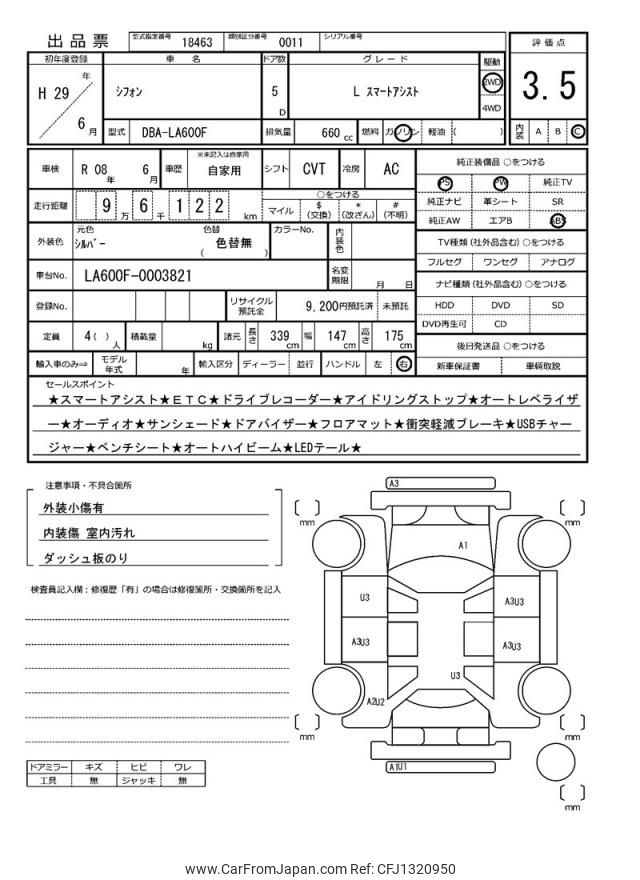 出品票 型式指定番号 18463 類別区分番号 0011 シリアル番号
評価点
3.5
内装 A B C
初年度登録 車名 ドア数 グレード 駆動
H 29 年 6 月
シフォン
5 D
L スマートアシスト
2WD
4WD
型式 DBA-LA600F 排気量 660 cc 燃料 ガソリン 軽油 ( )
車検 R 08 年 6 月 車歴 ※未記入は自家用 自家用 シフト CVT 冷房 AC
走行距離 9 万 6 千 1 2 2 km
○をつける
マイル $ (交換) * (改ざん) # (不明)
外装色 元色 シルバー 色替 色替無 ( ) カラーNo. 内装色
車台No. LA600F-0003821 名変期限 月 日
登録No. リサイクル預託金 9,200円預託済 未預託
定員 4( ) 人 積載量 kg 諸元 長さ 339 cm 幅 147 cm 高さ 175 cm
輸入車のみ⇒ モデル年式 年 輸入区分 ディーラー 並行 ハンドル 左 右
純正装備品 ○をつける
PS PW 純正TV
純正ナビ 革シート SR
純正AW エアB ABS
TV種類 (社外品含む) ○をつける
フルセグ ワンセグ アナログ
ナビ種類 (社外品含む) ○をつける
HDD DVD SD
DVD再生可 CD
後日発送品 ○をつける
新車保証書 車輌取説
セールスポイント
★スマートアシスト★ETC★ドライブレコーダー★アイドリングストップ★オートレベライザ
ー★オーディオ★サンシェード★ドアバイザー★フロアマット★衝突軽減ブレーキ★USBチャー
ジャー★ベンチシート★オートハイビーム★LEDテール★
注意事項・不具合箇所
外装小傷有
内装傷 室内汚れ
ダッシュ板のり
検査員記入欄：修復歴「有」の場合は修復箇所・交換箇所を記入
ドアミラー キズ ヒビ ワレ
工具 無 ジャッキ 無
A3
[ ] mm
[ ] mm
A1
U3
A3U3
A3U3
A3U3
U3
A2U2
[ ] mm
[ ] mm
A1U1
[ ] mm
www.CarFromJapan.com Ref: CFJ1320950